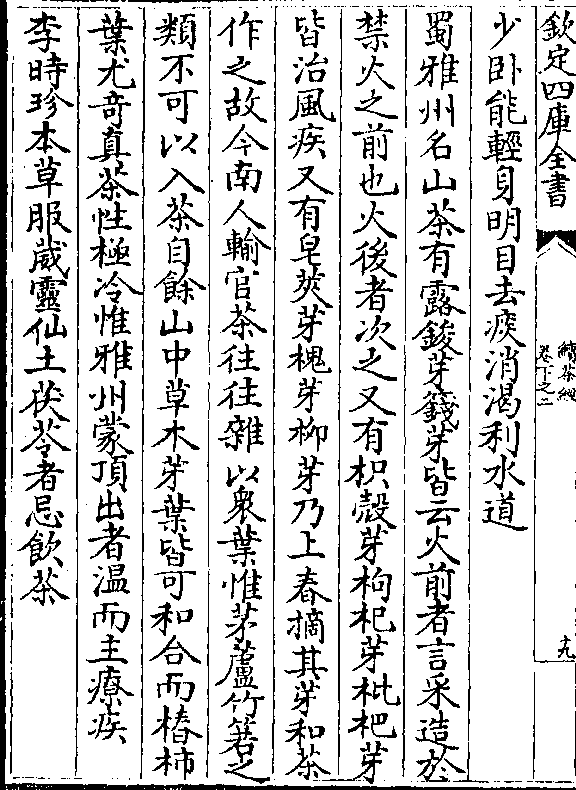 欽定四庫全書
續茶經
卷下之二
十九
少卧能輕身明目去痰消渴利水道
蜀雅州名山茶有露鋑芽籛芽皆云火前者言采造於
禁火之前也火後者次之又有枳殼芽枸杞芽枇杷芽
皆治風疾又有皂莢芽槐芽柳芽乃上春摘其芽和茶
作之故今南人輸官茶往往雜以衆葉惟茅蘆竹箬之
類不可以入茶自餘山中草木芽葉皆可和合而椿柿
葉尤奇真茶性極冷惟雅州蒙頂出者温而主療疾
李時珍本草服葳靈仙土茯苓者忌飲茶